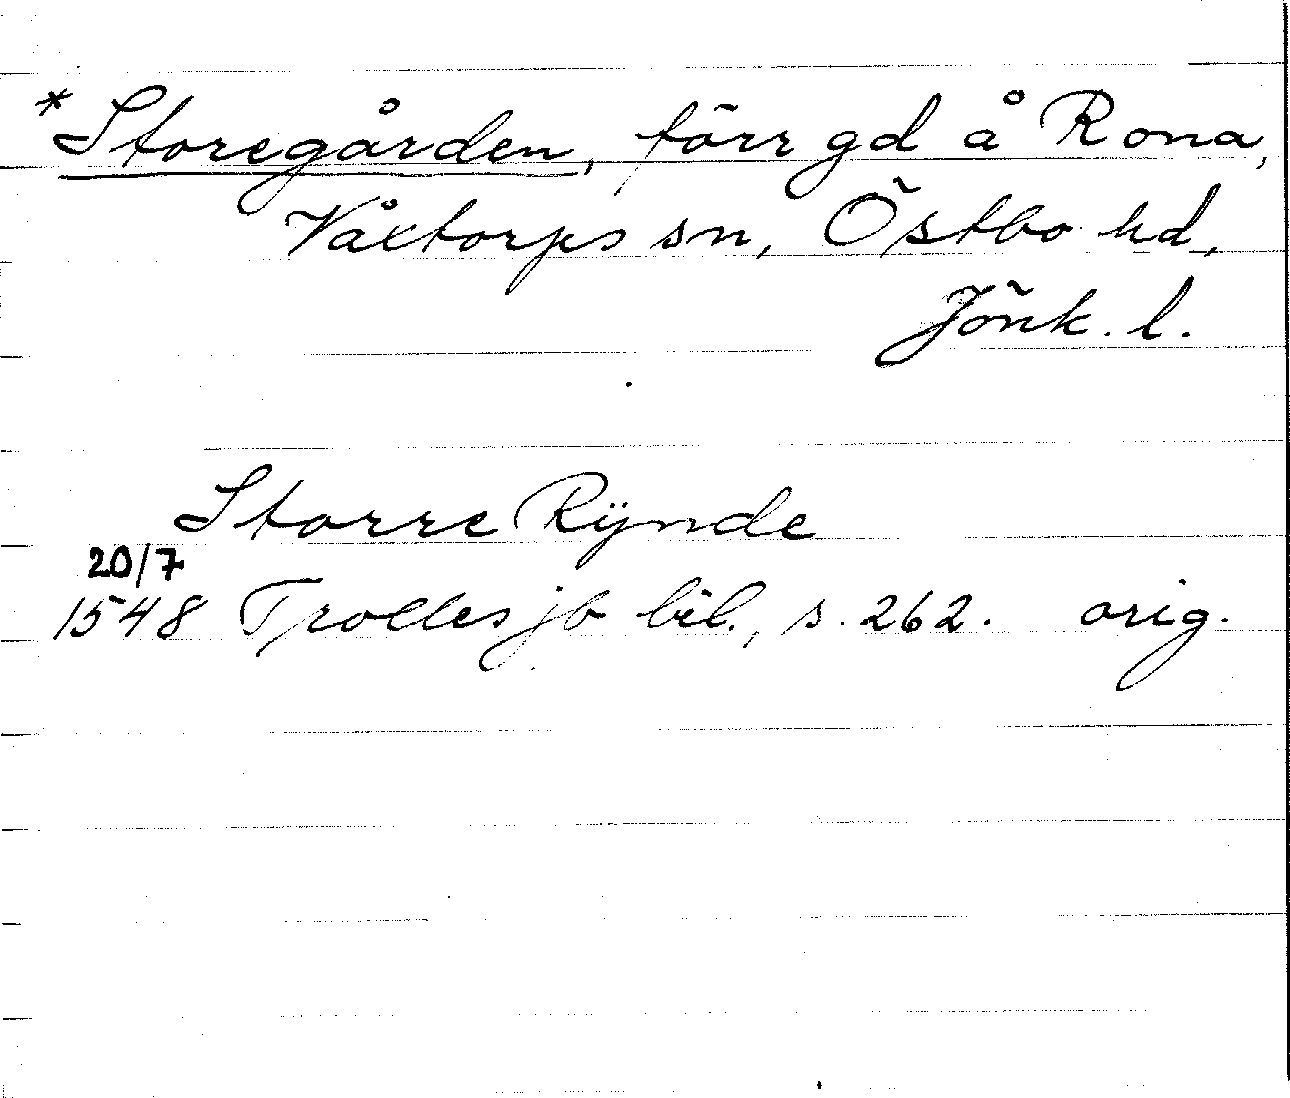 *Storegården, förr gd å Rona,
Våxtorps sn, Östbo hd,
Jönk. l.
Storre Rÿnde
20/7
1548 Trolles jb bil., s. 262. orig.